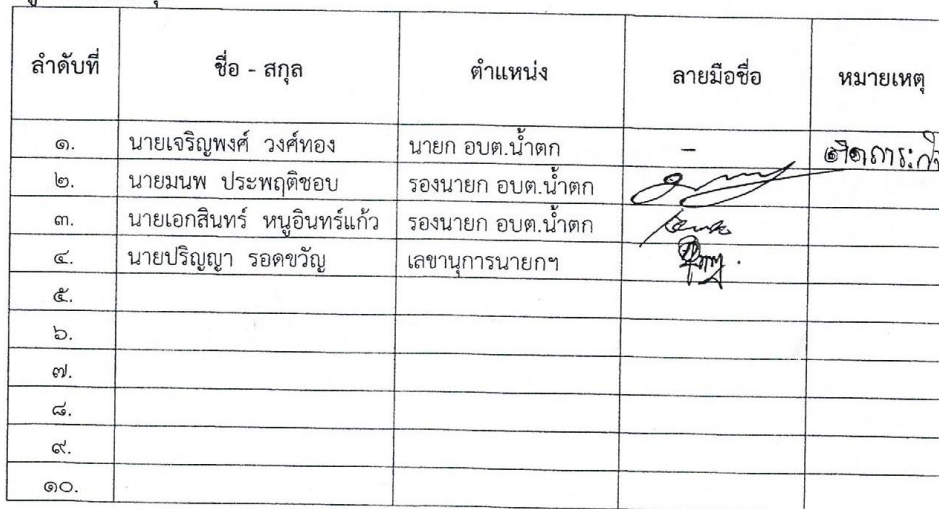 ลำดับที่ ชื่อ - สกุล ตำแหน่ง ลายมือชื่อ หมายเหตุ
๑. นายเจริญพงศ์ วงศ์ทอง นายก อบต.น้ำตก - ติดภาระกิจ
๒. นายมนพ ประพฤติชอบ รองนายก อบต.น้ำตก
๓. นายเอกสินทร์ หนูอินทร์แก้ว รองนายก อบต.น้ำตก
๔. นายปริญญา รอดขวัญ เลขานุการนายกฯ
๕.
๖.
๗.
๘.
๙.
๑๐.